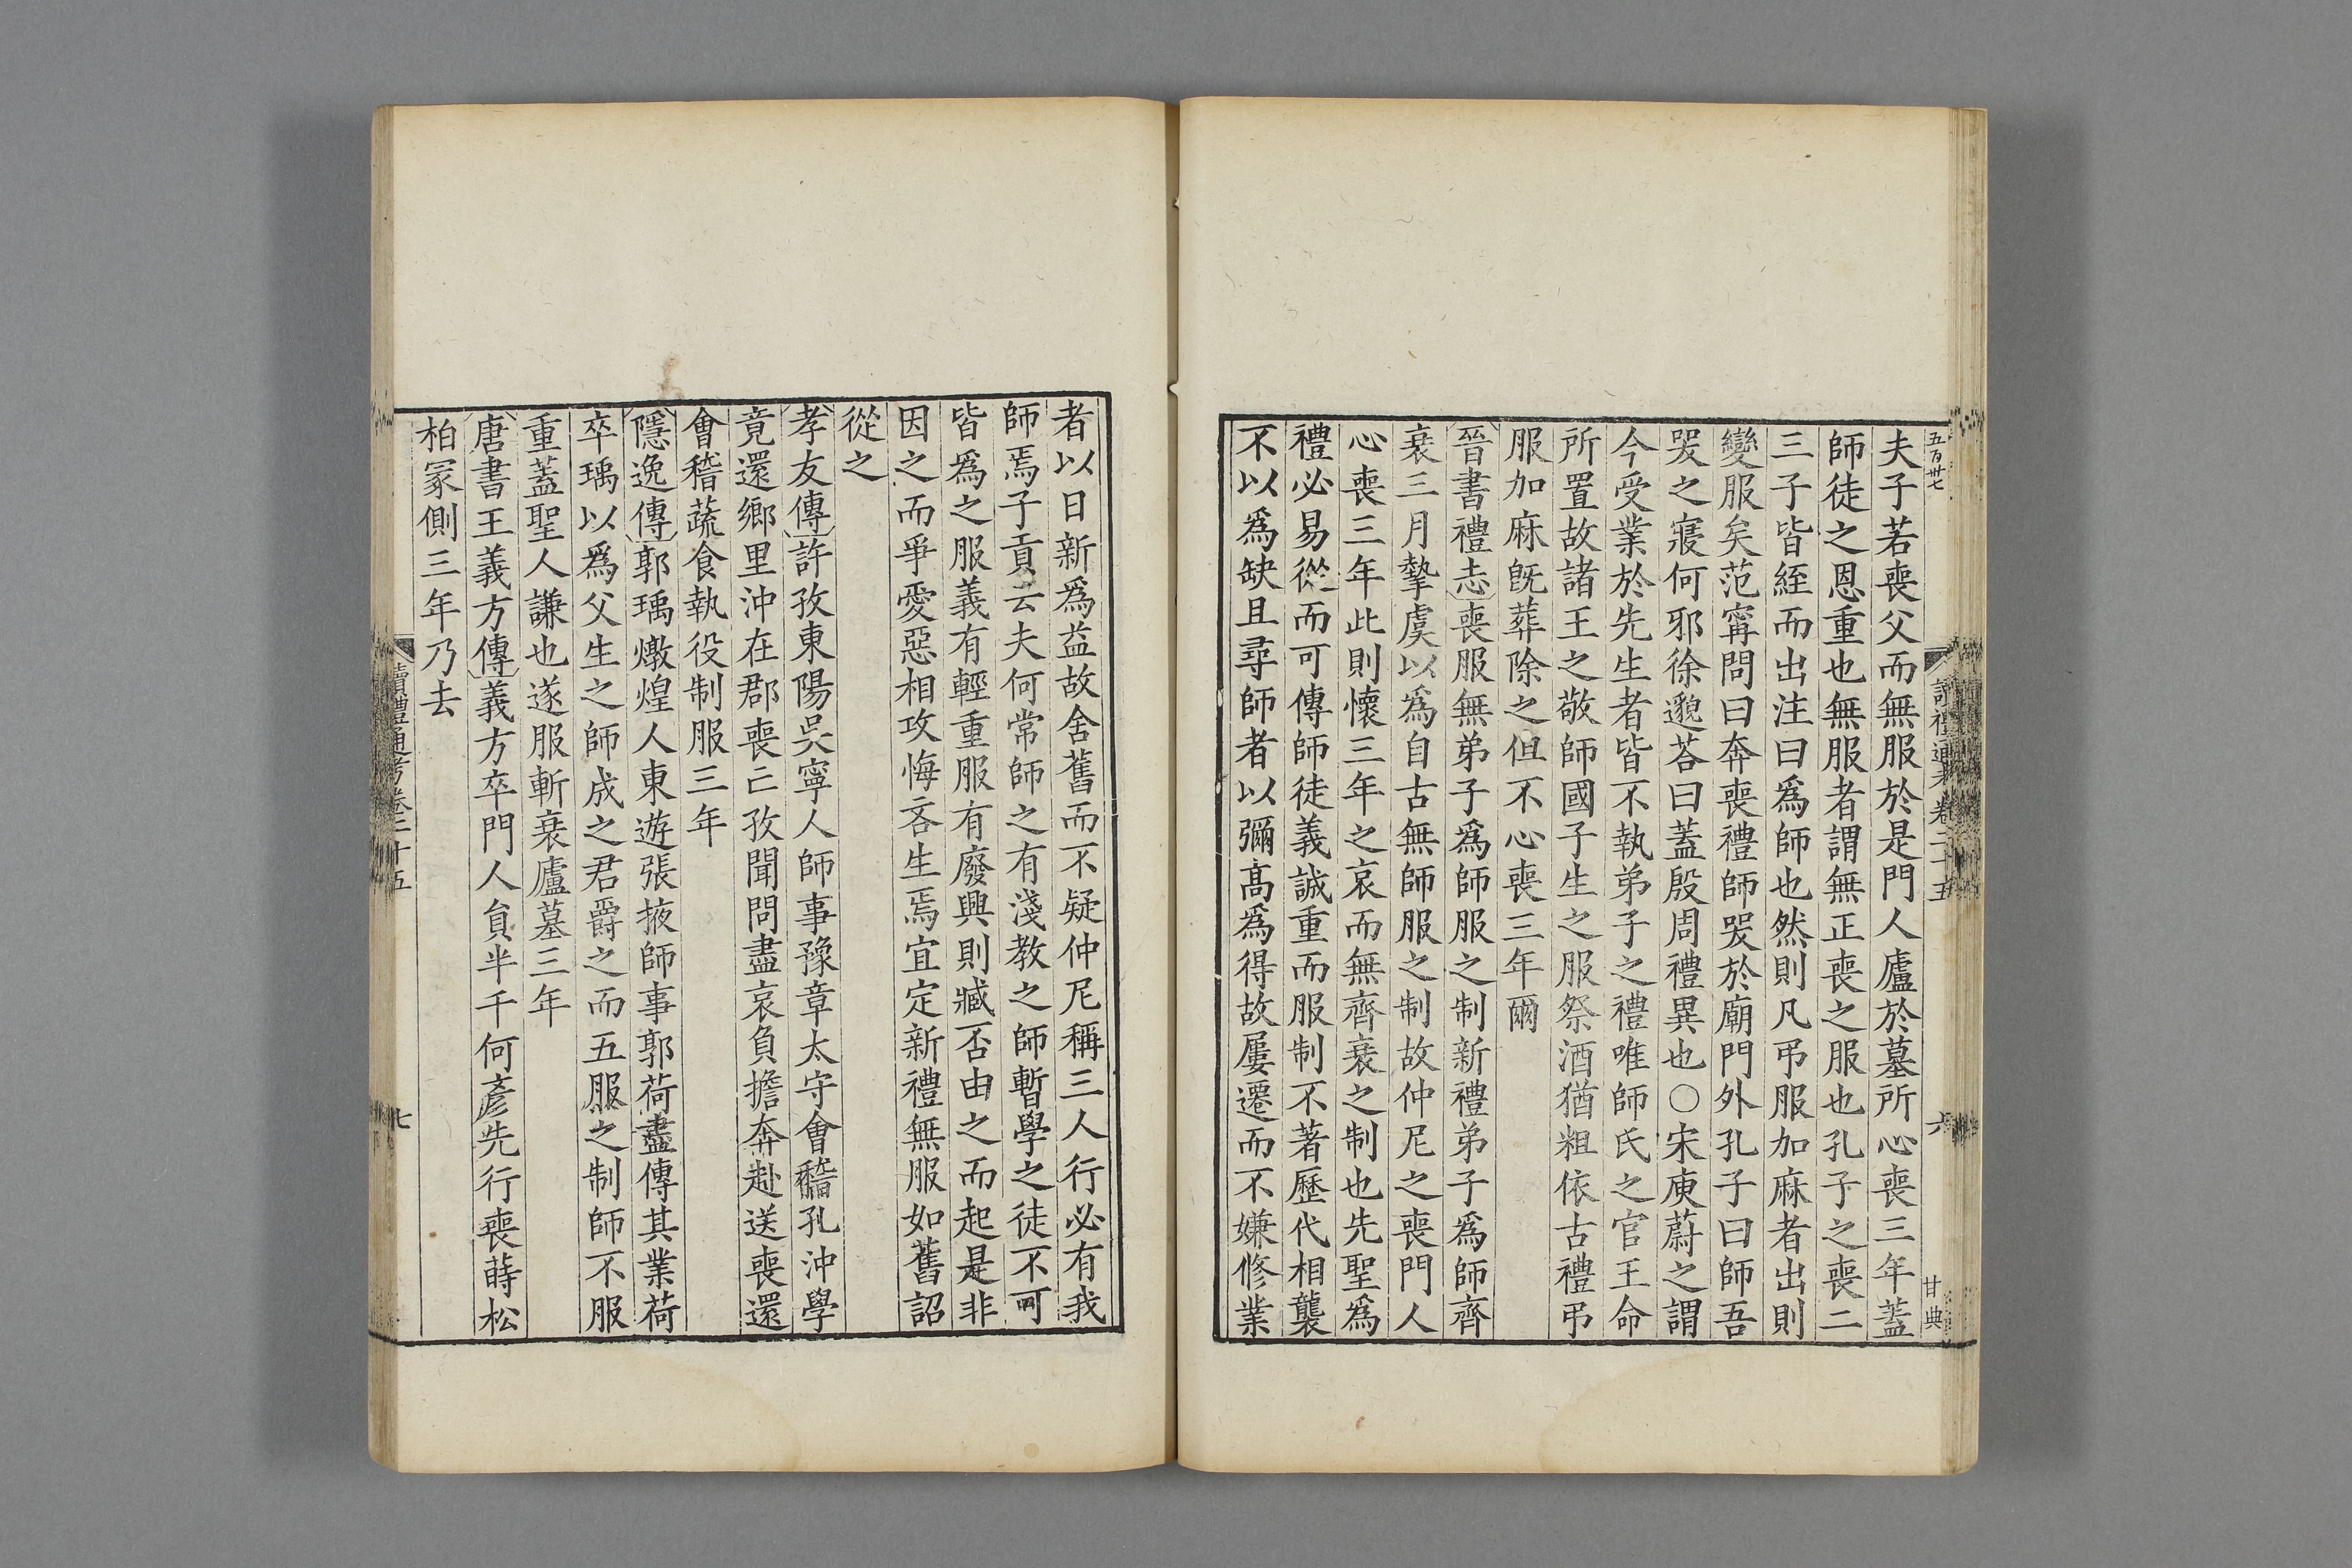 五百卅七
讀禮通考卷二十五
六
甘典
夫子若喪父而無服於是門人廬於墓所心喪三年蓋
師徒之恩重也無服者謂無正喪之服也孔子之喪二
三子皆絰而出注曰爲師也然則凡弔服加麻者出則
變服矣范甯問曰奔喪禮師哭於廟門外孔子曰師吾
哭之寢何邪徐邈荅曰蓋殷周禮異也○宋庾蔚之謂
今受業於先生者皆不執弟子之禮唯師氏之官王命
所置故諸王之敬師國子生之服祭酒猶粗依古禮弔
服加麻旣葬除之但不心喪三年爾
晉書禮志喪服無弟子爲師服之制新禮弟子爲師齊
衰三月摯虞以爲自古無師服之制故仲尼之喪門人
心喪三年此則懷三年之哀而無齊衰之制也先聖爲
禮必易從而可傳師徒義誠重而服制不著歷代相襲
不以爲缺且尋師者以彌高爲得故屢遷而不嫌修業
者以日新爲益故舍舊而不疑仲尼稱三人行必有我
師焉子貢云夫何常師之有淺教之師暫學之徒不可
皆爲之服義有輕重服有廢興則臧否由之而起是非
因之而爭愛惡相攻悔吝生焉宜定新禮無服如舊詔
從之
孝友傳許孜東陽吳寧人師事豫章太守會稽孔沖學
竟還鄉里沖在郡喪亡孜聞問盡哀負擔奔赴送喪還
會稽蔬食執役制服三年
隱逸傳郭瑀燉煌人東遊張掖師事郭荷盡傳其業荷
卒瑀以爲父生之師成之君爵之而五服之制師不服
重蓋聖人謙也遂服斬衰廬墓三年
唐書王義方傳義方卒門人員半千何彥先行喪蒔松
柏冢側三年乃去
讀禮通考卷二十五
七